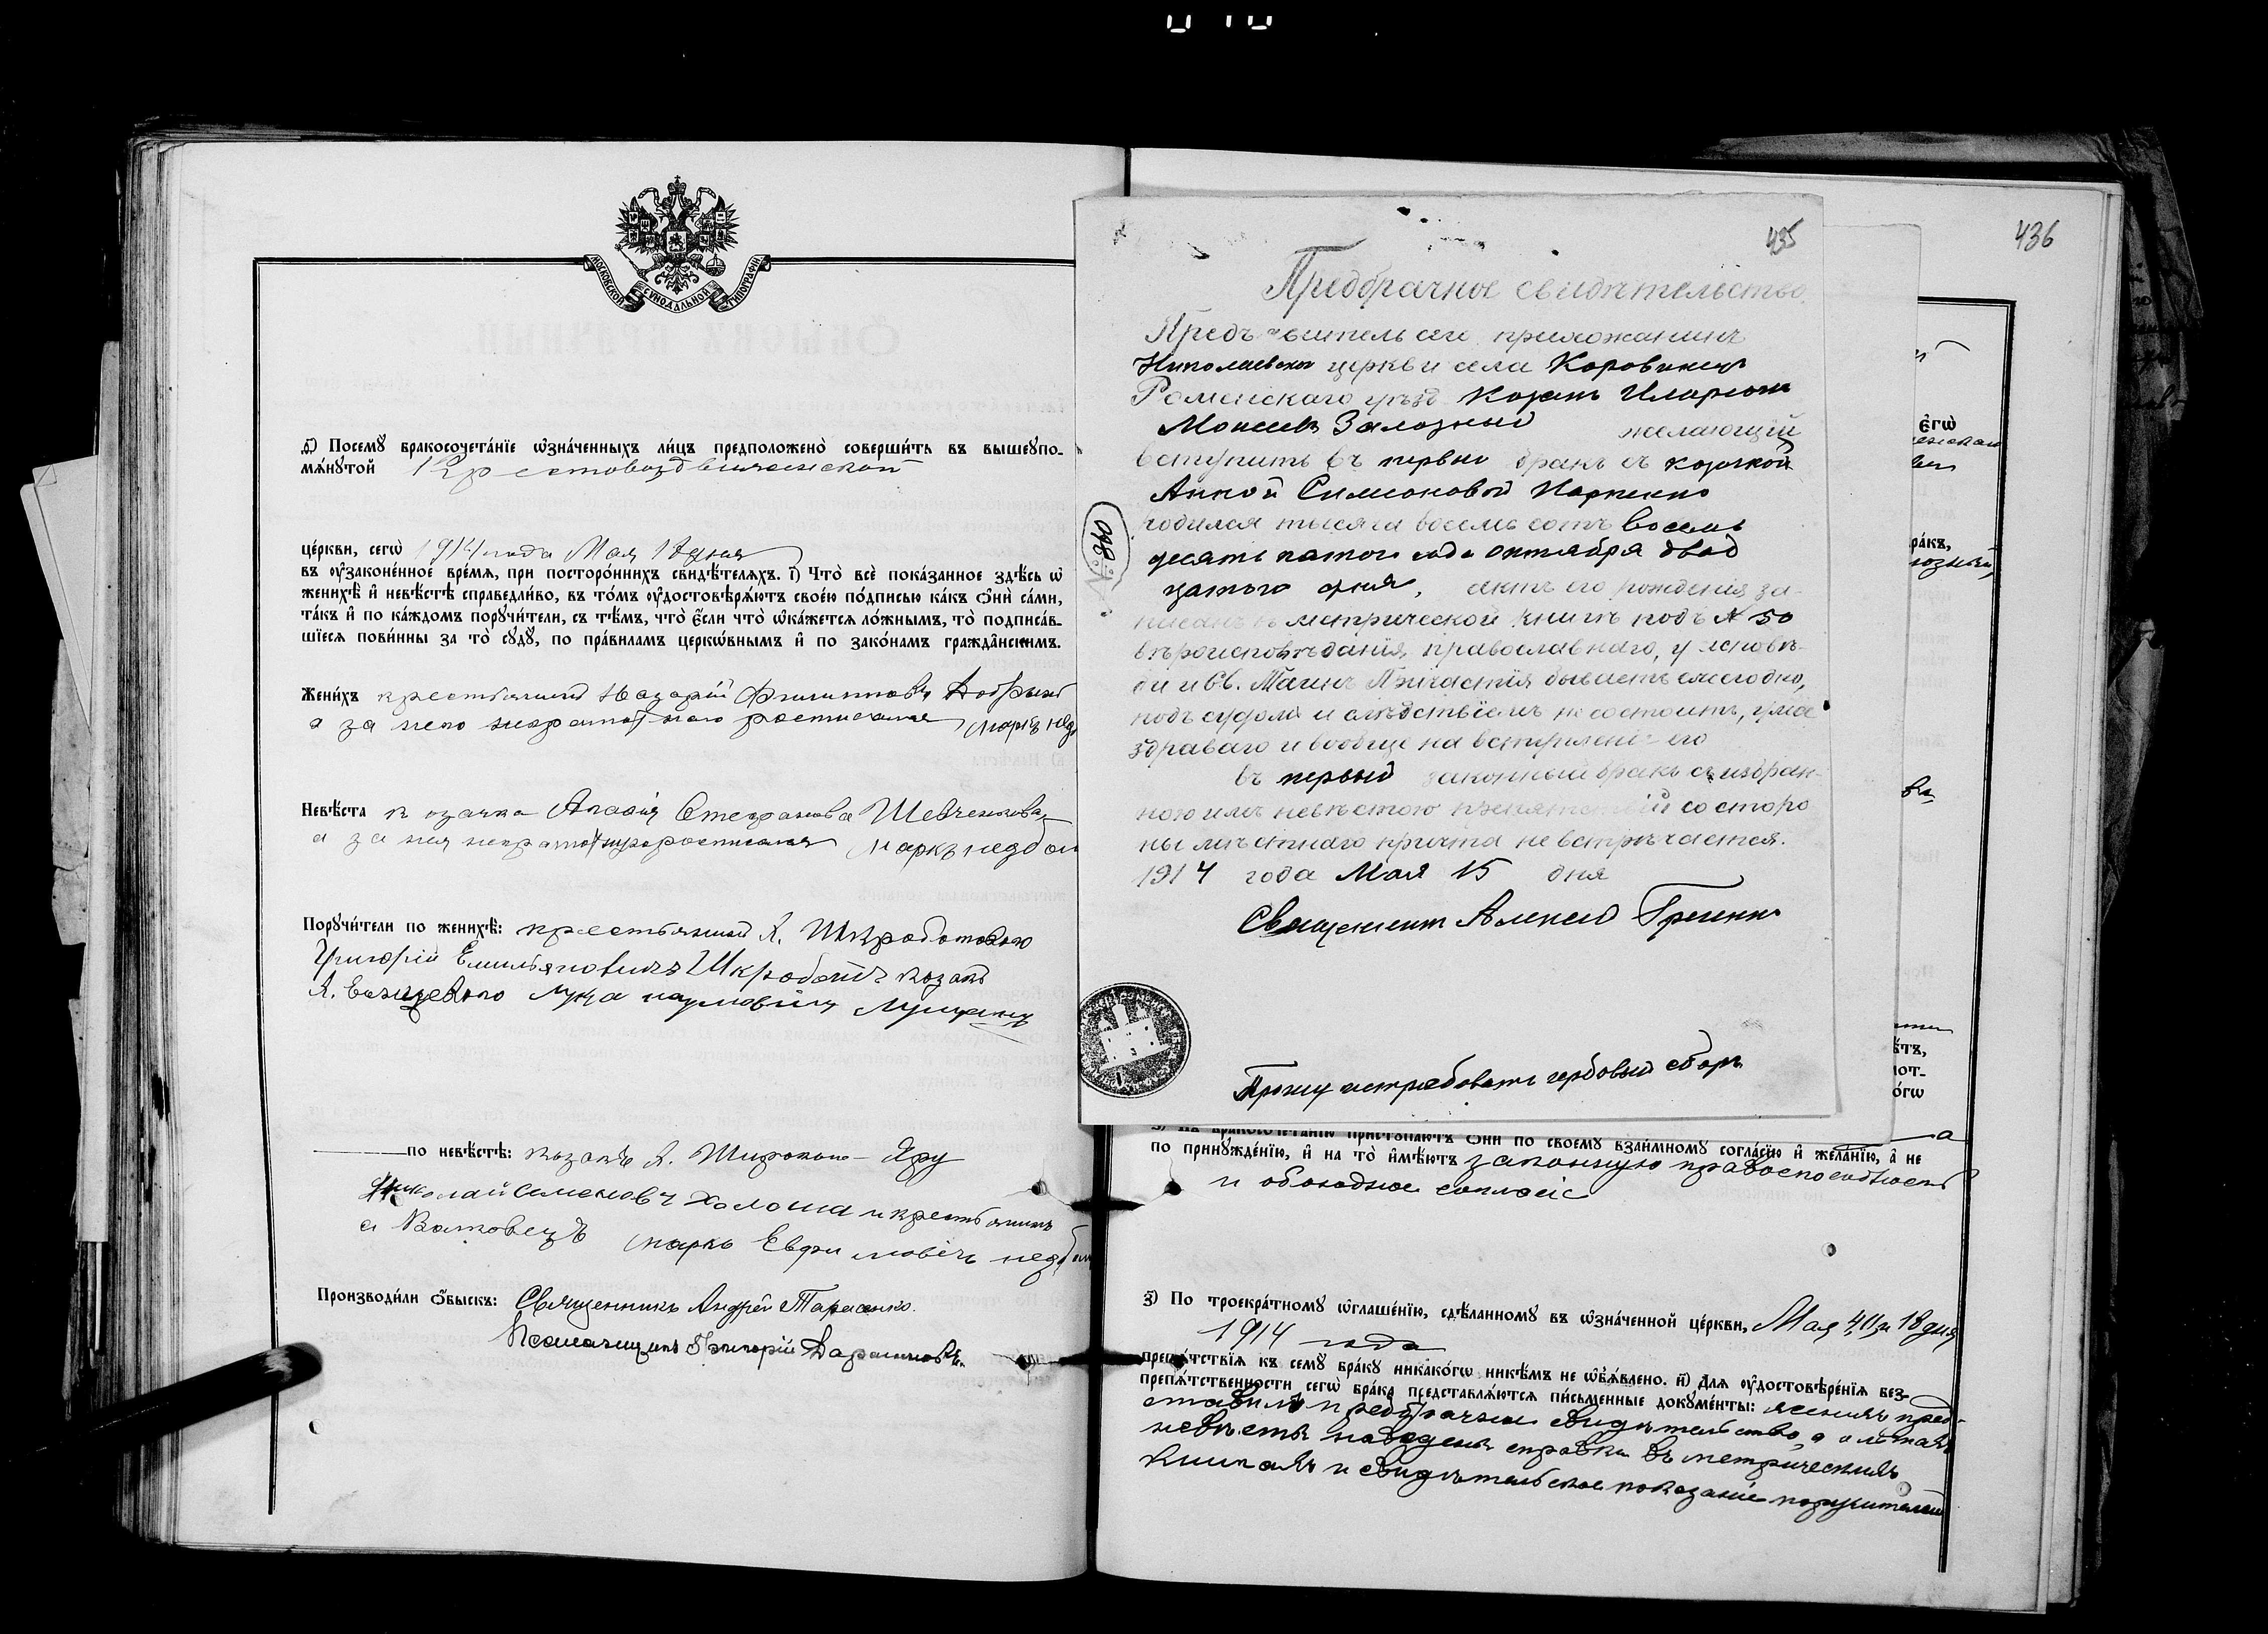 МОСКОВСКОЙ СѴНОДАЛЬНОЙ ТИПОГРАФІИ
д҃) Посемꙋ̀ бракосочета́нїе ѡ҆зна́ченныхъ ли́цъ предположено̀ соверши́ть въ вышеꙋпо-
мѧ́нꙋтой Крестовоздвиженской
це́ркви, сегѡ̀ 1914 года Мая 18 дня
въ ᲂу҆зако́ненное вре́мѧ, при посторо́ннихъ свидѣ́телѧхъ. і҃) Что̀ всѐ пока́занное здѣ́сь ѡ҆
женихѣ̀ и҆ невѣ́стѣ справедли́во, въ то́мъ ᲂу҆достовѣрѧ́ютъ свое́ю по́дписью ка́къ ѻ҆нѝ са́ми,
та́къ и҆ по ка́ждомъ порꙋчи́тели, съ тѣ́мъ, что̀ є҆́сли что̀ ѡ҆ка́жетсѧ ло́жнымъ, то̀ подписа́в-
шїесѧ пови́нны за то̀ сꙋдꙋ̀, по пра́виламъ церко́внымъ и҆ по зако́намъ гражда́нскимъ.
Жени́хъ крестьянинъ Назарій Филипповъ Добрый
а за него неграмотнаго росписался Марко Нед
Невѣ́ста козачка Агафія Стефанова Шевченкова,
а за нея неграмотную росписался Марко Недбай
Порꙋчи́тели по женихѣ̀: крестьянинъ д.
Григорій Емельяновичъ Шкроботъ козакъ
д. Лука Наумовичъ Лущикъ
по невѣ́стѣ: козакъ д. Широкого-Яру
Николай Семеновъ Халоша и крестьянинъ
Марко Евфимовичъ Недбай
Производи́ли ѻ҆́быскъ: Священникъ Андрей Тарасенко.
Псаломщикъ Григорій
435
Предбрачное свидѣтельство.
Предъявитель сего прихожанинъ
Николаевской церкви села Коровинецъ
Роменскаго уѣзда козакъ Иларіонъ
Моисеевъ Залозный желающій
вступить въ первый бракъ съ козачкой
Анной Симоновой
родился тысяча восемь сотъ восемь
десятъ пятого года октября двад
цатого дня, актъ его рожденія за-
писанъ въ метрической книгѣ подъ № 50
вѣроисповѣданія православнаго, у исповѣ-
ди и Св. Таинъ Причастія бываетъ ежегодно,
подъ судомъ и слѣдствіемъ не состоитъ, ума
здраваго и вообще на вступленіе его
въ первый законный бракъ съ избран-
ною имъ невѣстою препятствій со сторо
ны мѣстнаго причта не встрѣчается.
1914 года Мая 15 дня
Священникъ Алексей Гренко
Прошу истребовать гербовый сборъ
№ 840
436
є҆гѡ̀
ра́къ,
по принꙋжде́нїю, и҆ на то̀ и҆мѣ́ютъ законную правоспособность
и обоюдное согласіе
з҃) По троекра́тномꙋ ѡ҆глаше́нїю, сдѣ́ланномꙋ въ ѡ҆зна́ченной це́ркви, Мая 4, 11 и 18 дня
1914 года
препѧ́тствїѧ къ семꙋ̀ бра́кꙋ никако́гѡ никѣ́мъ не ѡ҆б̾ѧ́влено. и҃) Для ᲂу҆достовѣре́нїѧ без-
препѧ́тственности сегѡ̀ бра́ка представлѧ́ютсѧ пи́сьменные докꙋме́нты: женихъ пред-
ставилъ предбрачное свидѣтельство, а о лѣтахъ
невѣсты наведены справки въ метрическихъ
книгахъ и свидѣтельское показаніе поручителей